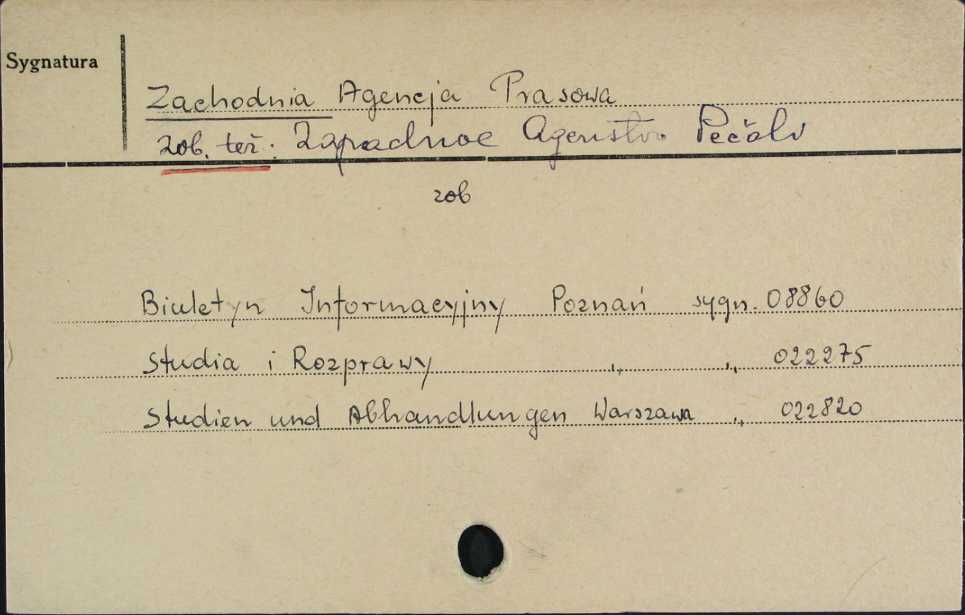 Sygnatura
Zachodnia Agencja Prasowa
zob. też: Zapadnoe Agenstvo Pečăły
zob
Biuletyn Informacyjny Poznań sygn. 08860
Studia i Rozprawy " " 022275
Studien und Abhandlungen Warszawa " 022820